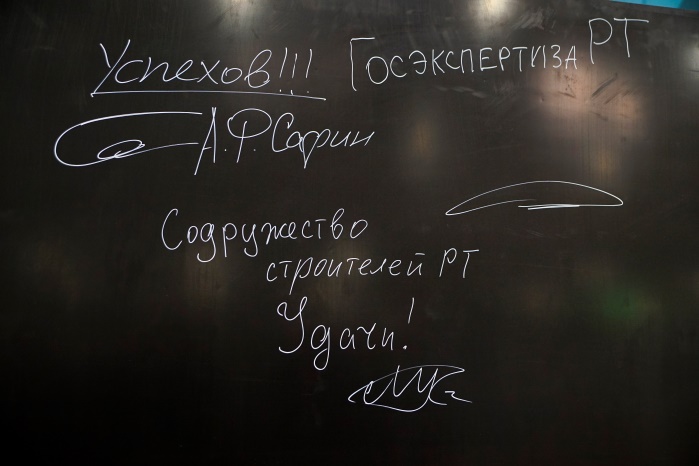 Успехов!!!
Госэкспертиза РТ
А.Ф. Сафин
Содружество
строителей РТ
Удачи!